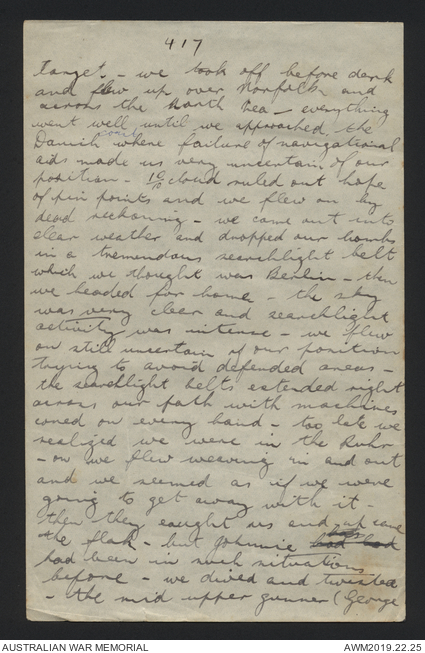 417
Target. - we took off before dark
and flew up over Norfolk and
across the North Sea - everything
went well until we approached, the
Danish coast where failure of navigational
aids made us very uncertain of our
position - 10/10 cloud ruled out hope
of pin points and we flew on by
dead reckoning - we came out into
clear weather and dropped our bombs
in a tremendous searchlight belt
which we thought was Berlin - then
we headed for home - the sky
was very clear and searchlight
activity was intense - we flew
on still uncertain of our position
trying to avoid defended areas -
the searchlight belts extended right
across our path with machines
coned on every hand - too late we
realized we were in the Ruhr
- on we flew weaving in and out
and we seemed as if we were
going to get away with it -
then they caught us and up came
the flak - but Johnnie has had
had been in such situations
before - we dived and twisted
- the mid upper gunner (George
AUSTRALIAN WAR MEMORIAL
AWM2019.22.25